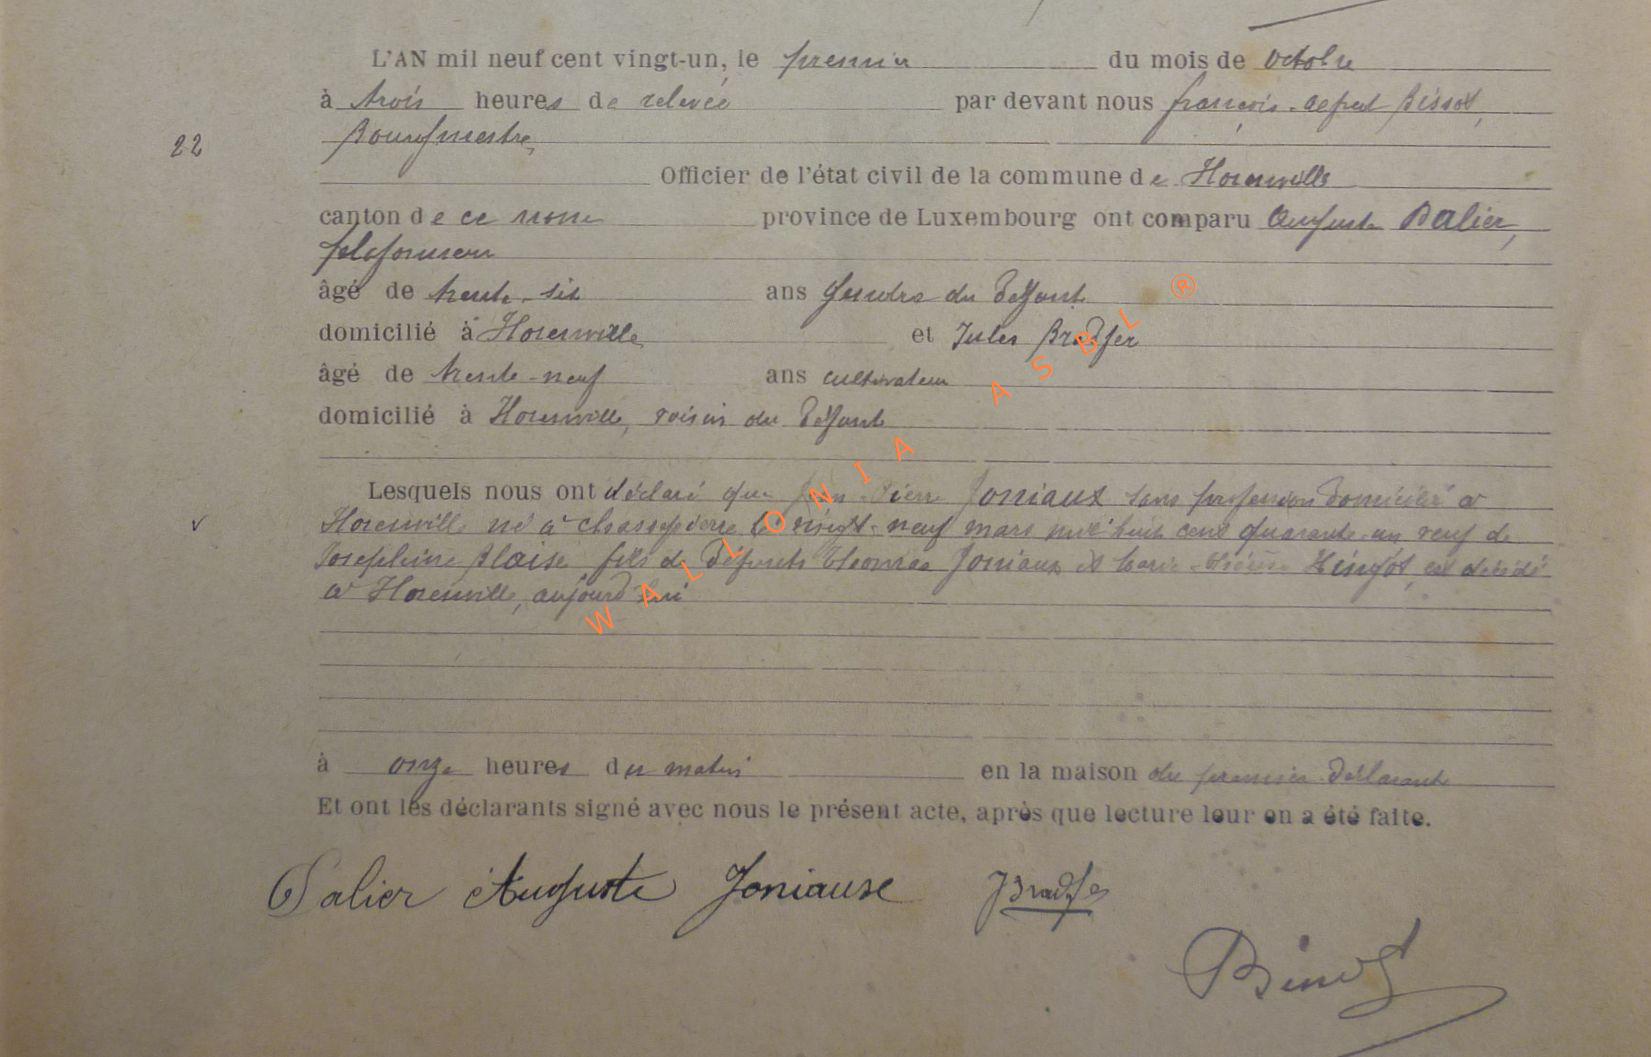 L'AN mil neuf cent vingt-un, le premier du mois de octobre
à trois heures de relevée par devant nous françois-Alfred Bissot,
Bourgmestre,
22
Officier de l'état civil de la commune de Florenville
canton de ce nom province de Luxembourg ont comparu Auguste Dalier,
plafonneur
âgé de trente-six ans gendre du défunt
domicilié à Florenville et Jules Bradfer
âgé de trente-neuf ans cultivateur
domicilié à Florenville, voisin du défunt
Lesquels nous ont déclaré que Jean-Pierre Joniaux sans profession domicilié à
Florenville né à Chassepierre le vingt-neuf mars mil huit cent quarante-un veuf de
Josephine Blaise fils de défunts Thomas Joniaux et Marie est décédé
à Florenville, aujourd'hui
à onze heures du matin en la maison du premier déclarant
Et ont les déclarants signé avec nous le présent acte, après que lecture leur en a été faite.
Dalier Auguste Joniause JBradfer
WALLONIA ASBL ®